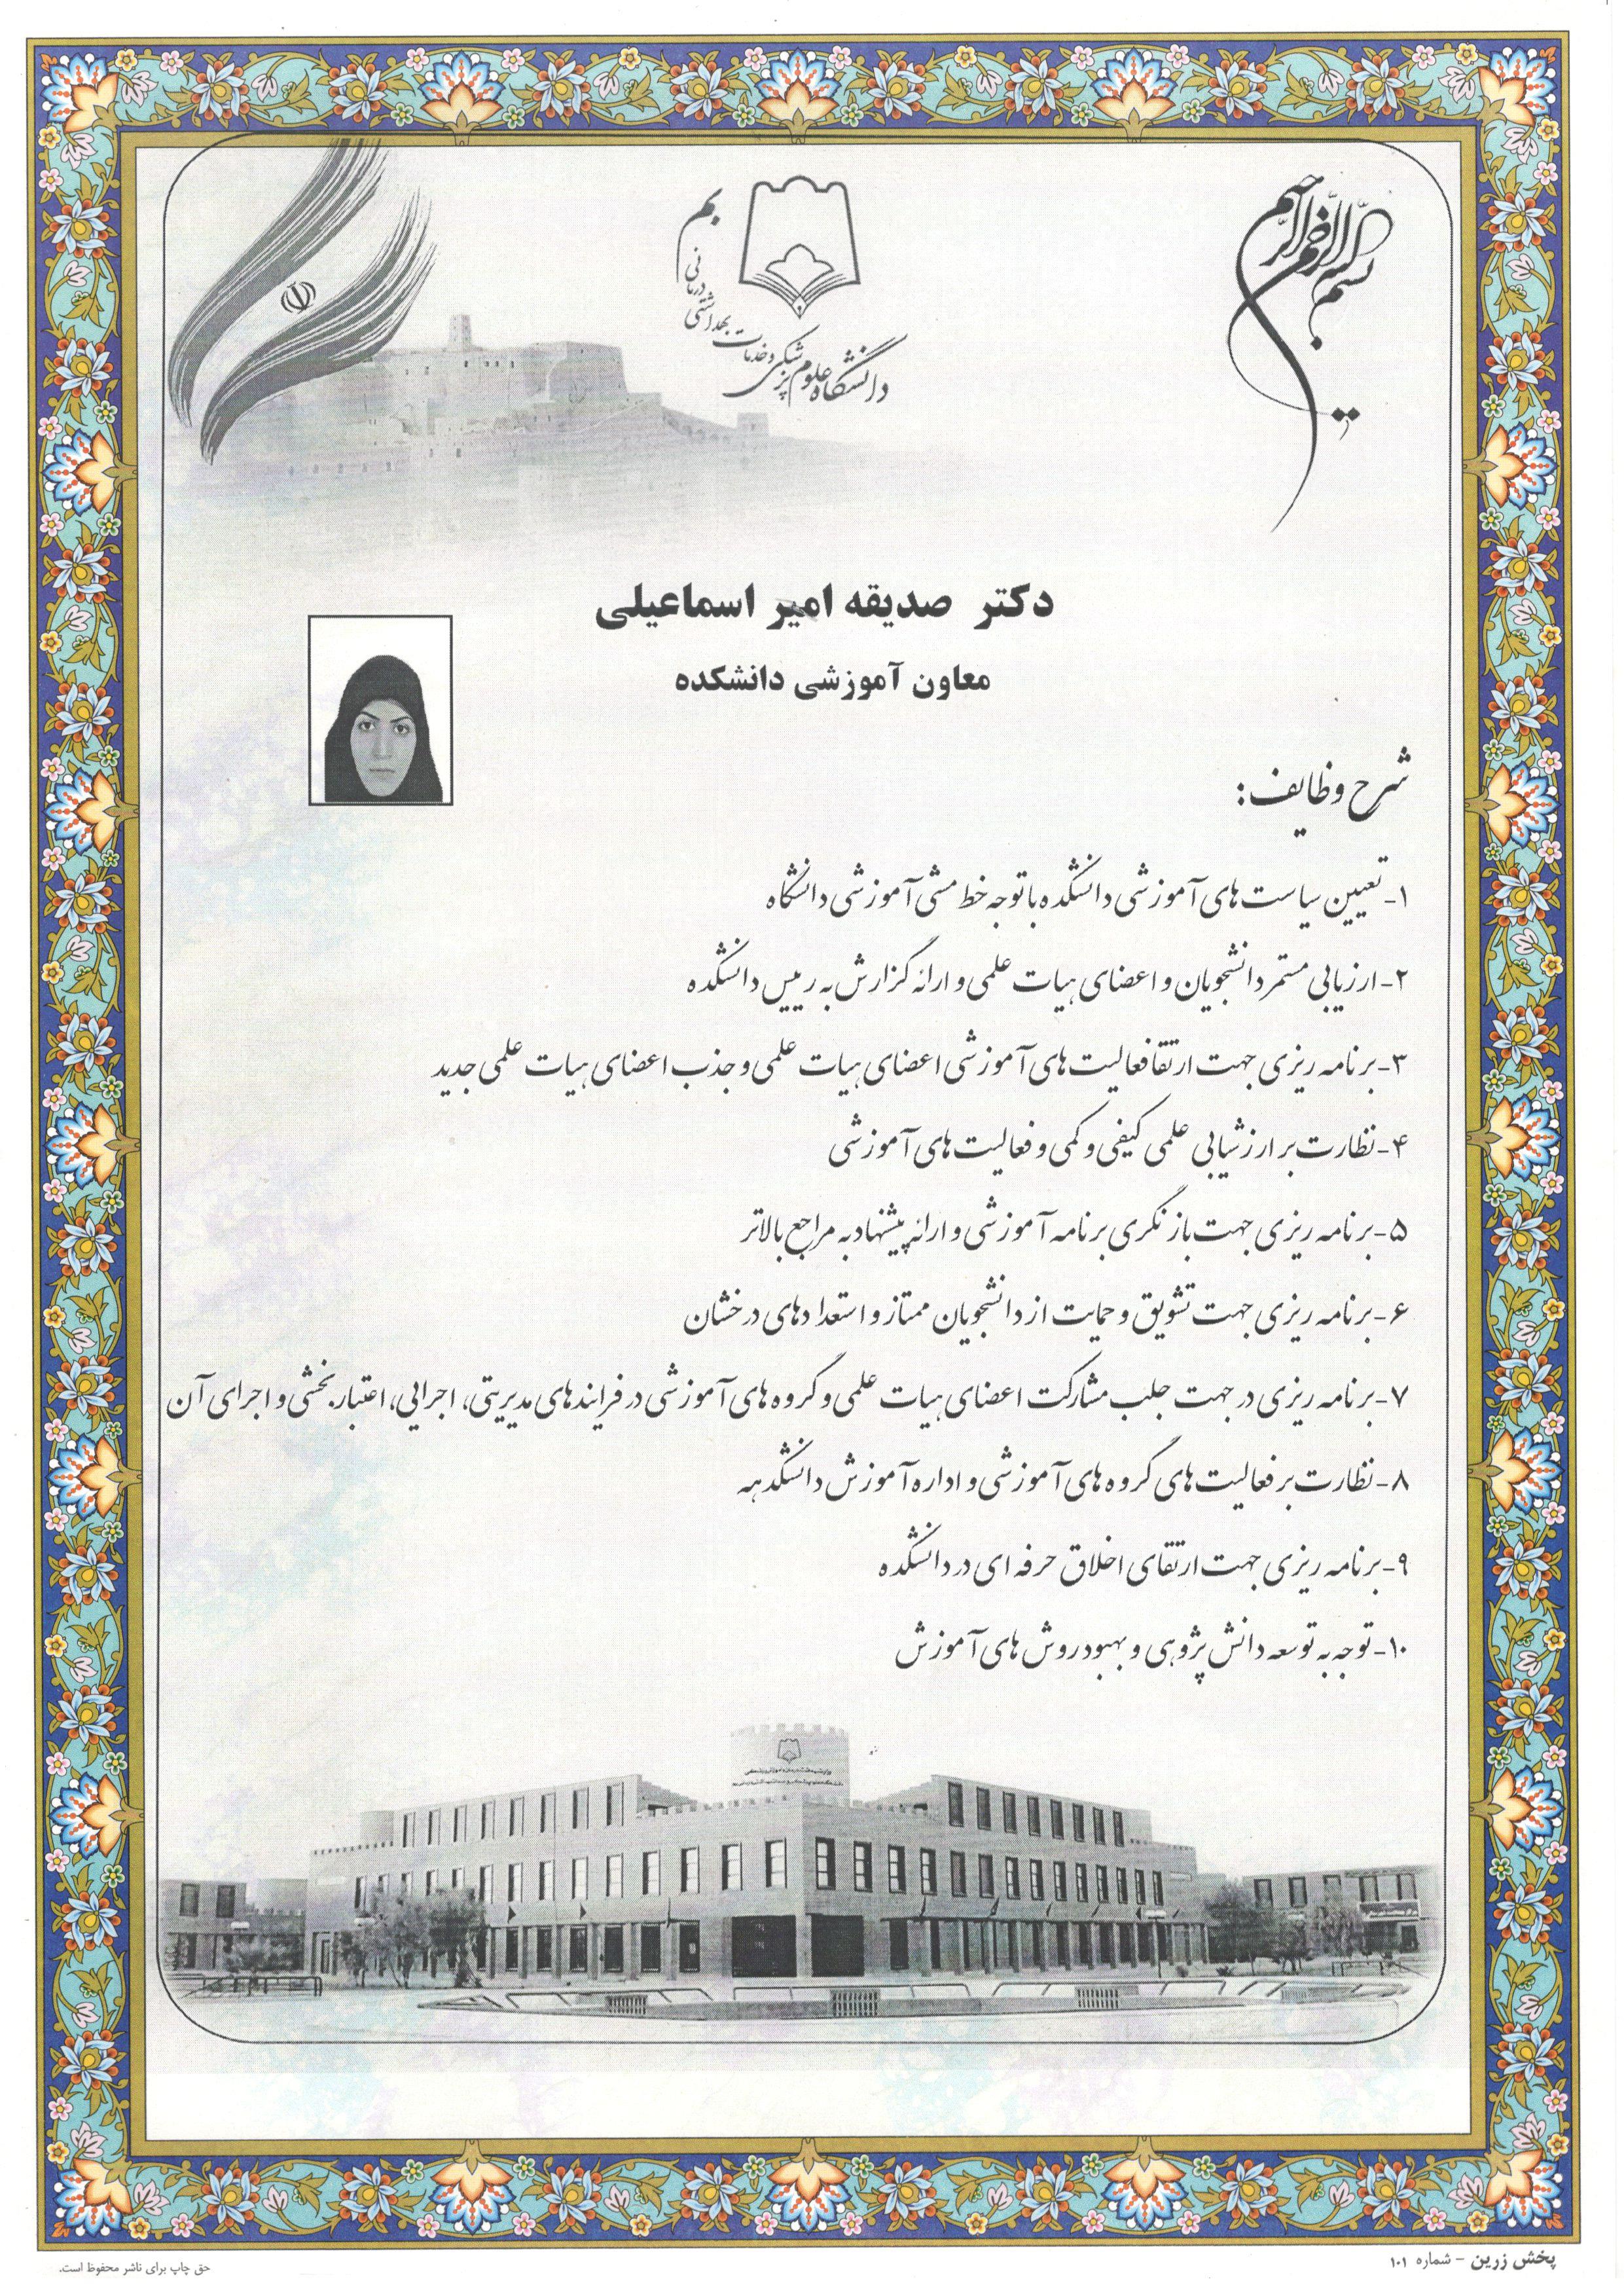 بسم الله الرحمن الرحیم
دانشگاه علوم پزشکی و خدمات بهداشتی درمانی بم
دکتر صدیقه امیر اسماعیلی
معاون آموزشی دانشکده
شرح وظایف:
۱- تعیین سیاست های آموزشی دانشکده با توجه خط مشی آموزشی دانشگاه
۲- ارزیابی مستمر دانشجویان و اعضای هیات علمی و ارائه گزارش به رییس دانشکده
۳- برنامه ریزی جهت ارتقا فعالیت های آموزشی اعضای هیات علمی و جذب اعضای هیات علمی جدید
۴- نظارت بر ارزشیابی علمی کیفی و کمی و فعالیت های آموزشی
۵- برنامه ریزی جهت بازنگری برنامه آموزشی و ارائه پیشنهاد به مراجع بالاتر
۶- برنامه ریزی جهت تشویق و حمایت از دانشجویان ممتاز و استعدادهای درخشان
۷- برنامه ریزی در جهت جلب مشارکت اعضای هیات علمی و گروه های آموزشی در فرایندهای مدیریتی، اجرایی، اعتبار بخشی و اجرای آن
۸- نظارت بر فعالیت های گروه های آموزشی و اداره آموزش دانشکدهه
۹- برنامه ریزی جهت ارتقای اخلاق حرفه ای در دانشکده
۱۰- توجه به توسعه دانش پژوهی و بهبود روش های آموزش
پخش زرین - شماره ۱۰۱
حق چاپ برای ناشر محفوظ است.